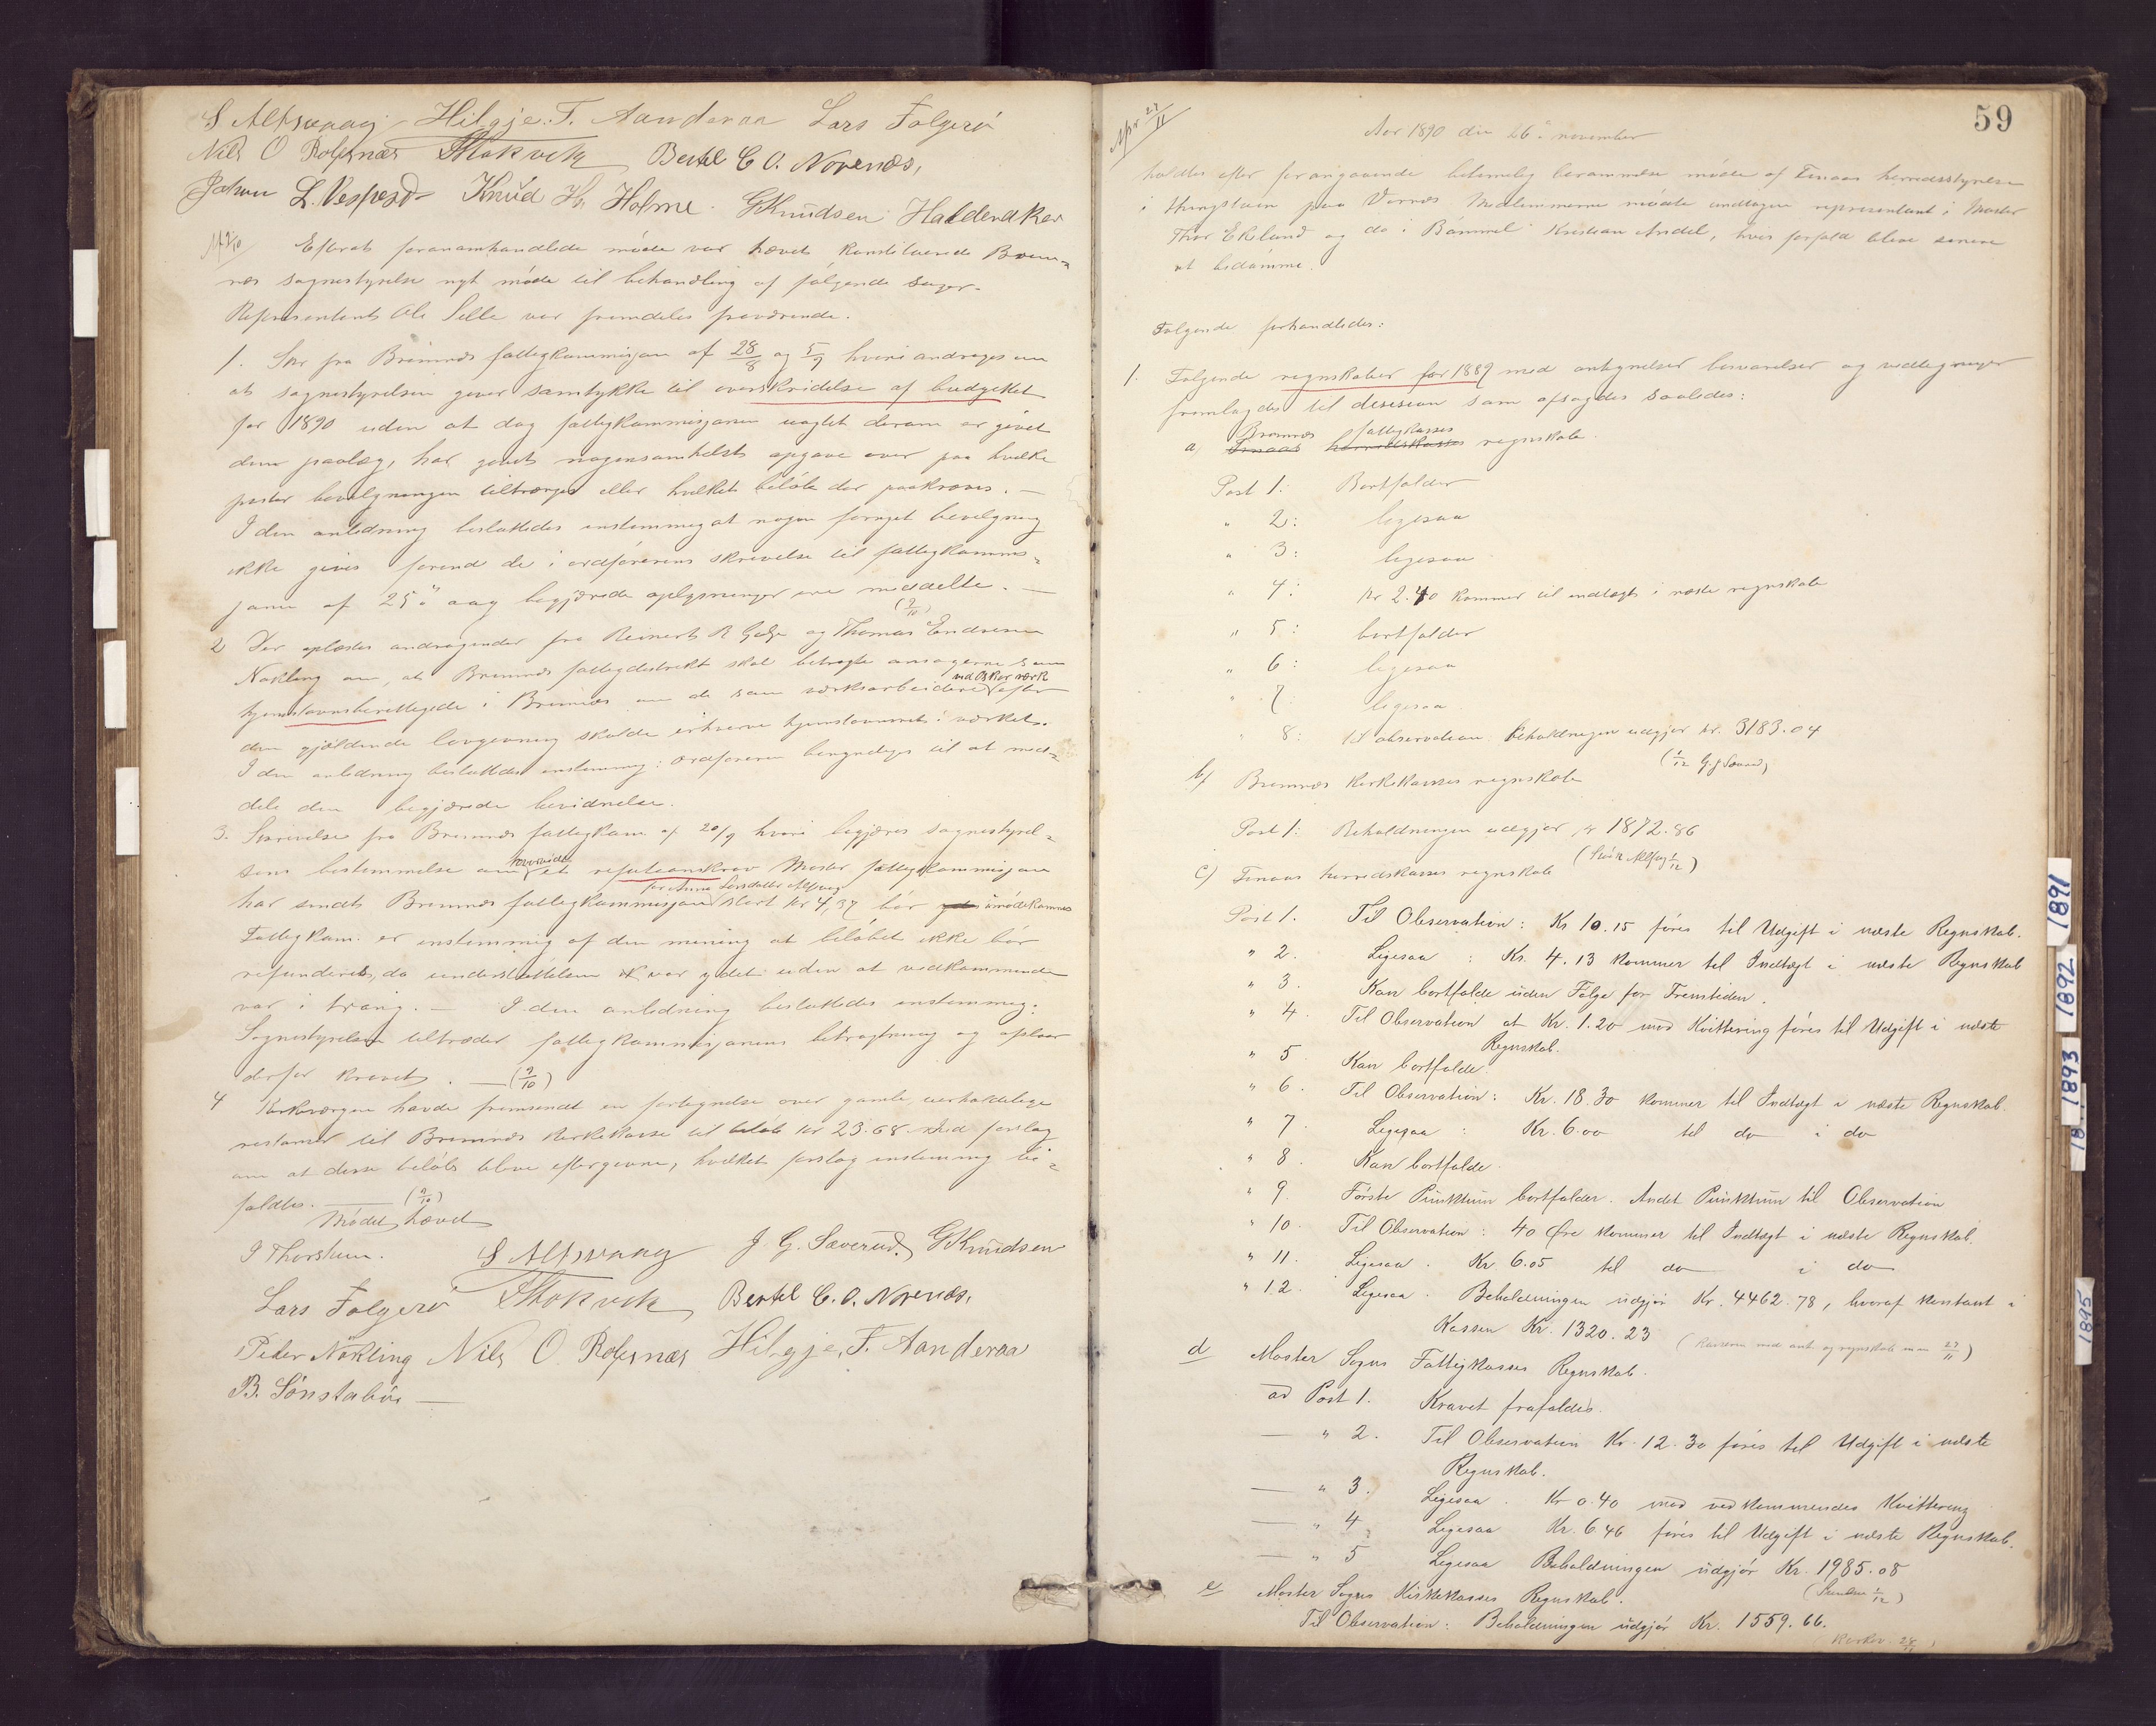 S Alfsvaag Hilgje. F. Aanderaa Lars Folgerö
Nils O Rolfsnæs SStokvik Bertel C O. Norenæs,
Johan L. Vespestd Knud Hs Holme. GKnudsen Haldenaker
Efterat forannævnte møde var hævet konstituerede Brem=
næs sognestyrelse nyt møde til behandling af følgende sager.
Repræsentant Ole Selle var fremdeles fraværende.
1. Skr fra Bremnæs fattigkommisjon af 28/8 og 5/9 hvori andrages om
at sognestyrelsen giver samtykke til overskridelse af budgettet
for 1890 uden at dog fattigkommisjonen uagtet derom er givet
dem paalæg, har givet nogensomhelst opgave over paa hvilke
poster bevilgningen tiltrænges eller hvilket beløb der paakræves. —
I den anledning besluttedes enstemmig at nogen forøget bevilgning
ikke gives førend de i ordførerens skrivelse til fattigkommis=
jonen af 25de aug begjærede oplysninger ere meddelte. —
(9/10)
2 Der oplæstes andragender fra Reinert R Gaze og Thomas Endresen
Nøkling om, at Bremnæs fattigdistrikt skal betragte ansøgerne som
ved Oskar værk
hjemstavnsberettigede i Bremnæs om de som værksarbeidere efter
den gjældende lovgivning skulde erhverve hjemstavnsret i værket.
I den anledning besluttedes enstemmig: ordføreren bemyndiges til at med=
dele den begjærede bevidnelse.
3. Skrivelse fra Bremnæs fattigkom. af 20/9 hvori begjæres sognestyrel=
sens bestemmelse om hvorvidt et refusionskrav Moster fattigkommisjon
for Anna Larsdatter Alfsvaag
har sendt Bremnæs fattigkommisjon stort kr 4,37 bør imødekommes
Fattigkom. er enstemmig af den mening at beløbet ikke bør
refunderes, da understøttelsen var ydet uden at vedkommende
var i trang. — I den anledning besluttedes enstemmig:
Sognestyrelsen tiltræder fattigkommisjonens betragtning og afslaar
derfor kravet. — (9/10)
4 Kirkeværgen havde fremsendt en fortegnelse over gamle uerholdelige
restancer til Bremnæs kirkekasse til beløb kr 23.68. med forslag
om at disse beløb bleve eftergivne, hvilket forslag enstemmig bi=
faldtes. — (9/10)
Mødet hævet
J Thorstun. S Alfsvaag J. G. Sæverud. GKnudsen
Lars Folgerö SStokvik Bertel C. O. Norenæs.
Peder Nökling Nils O. Rolfsnæs Hilgje. F. Aanderaa
B. Sönstabö —
59
Aar 1890 den 26de november
holdtes efter forangaaende betimelig berammelse møde af Finaas herredsstyrelse
i thingstuen paa Vornæs Medlemmerne mødte undtagen repræsentant i Moster
Thor Ekeland og do i Bömmel Kristian Andal, hvis forfald bleve senere
at bedømme.
Følgende forhandledes:
1. Følgende regnskaber for 1889 med antegnelser besvarelser og vedlegninger
fremlagdes til desision som afsagdes saaledes:
Bremnæs fattigkasses
a) Finaas herredskasses regnskab.
Post 1: Bortfalder
" 2: ligesaa
" 3: ligesaa
" 4: Kr 2.40 kommer til indtægt i næste regnskab
" 5: bortfalder
" 6: ligesaa
" 7: ligesaa
" 8: til observation. Beholdningen udgjør kr. 3183.04
b) Bremnæs kirkekasses regnskab
Post 1: Beholdningen udgjør kr 1872.86
c) Finaas herredskasses regnskab
Post 1. Til Observation: Kr 10.15 føres til Udgift i næste Regnskab.
" 2. Ligesaa : Kr. 4.13 kommer til Indtægt i næste Regnskab
" 3. Kan bortfalde uden Følge for Fremtiden.
" 4. Til Observation at Kr. 1.20 mod Kvittering føres til Udgift i næste
Regnskab.
" 5. Kan bortfalde.
" 6. Til Observation: Kr. 18.30 kommer til Indtægt i næste Regnskab.
" 7. Ligesaa : Kr. 6.00 til do i do
" 8. Kan bortfalde.
" 9. Første Punktum bortfalder. Andet Punktum til Observation
" 10. Til Observation: 40 Øre kommer til Indtægt i næste Regnskab.
" 11. Ligesaa. Kr 6.05 til do i do
" 12. Ligesaa. Beholdningen udgjør Kr. 4462.78, hvoraf kontant i
Kassen Kr. 1320.23
d Moster Sogns Fattigkasses Regnskab.
ad Post 1. Kravet frafaldes.
— " 2. Til Observation Kr. 12.30 føres til Udgift i næste
Regnskab.
— " 3. Ligesaa. Kr 0.40 mod vedkommendes Kvittering
— " 4. Ligesaa Kr. 6.46 føres til Udgift i næste Regnskab.
— " 5 Ligesaa Beholdningen udgjør Kr. 1985.08
e Moster Sogns Kirkekasses Regnskab.
Til Observation: Beholdningen udgjør Kr. 1559.66.
1891
1892
1893
18
1895